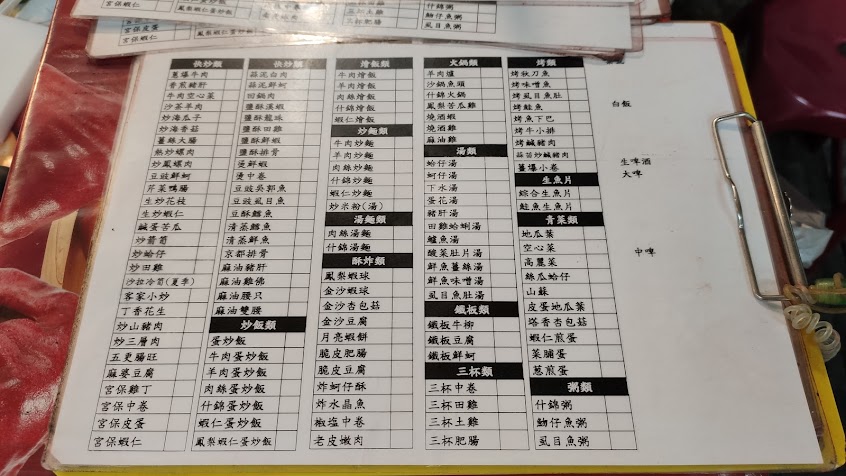 宮保蝦仁
宮保皮蛋
宮保蝦仁
鳳梨蝦仁蛋炒飯
三杯土雞
三杯肥腸
什錦粥
魩仔魚粥
虱目魚粥
快炒類
蔥爆牛肉
香煎豬肝
牛肉空心菜
沙茶羊肉
炒海瓜子
炒海香菇
薑絲大腸
熱炒螺肉
炒鳳螺肉
豆豉鮮蚵
芹菜鴨腸
生炒花枝
生炒蝦仁
鹹蛋苦瓜
炒箭筍
炒蛤仔
炒田雞
沙拉冷筍(夏季)
客家小炒
丁香花生
炒山豬肉
炒三層肉
五更腸旺
麻婆豆腐
宮保雞丁
宮保中卷
宮保皮蛋
宮保蝦仁
快炒類
蒜泥白肉
蒜泥鮮蚵
回鍋肉
鹽酥溪蝦
鹽酥龍珠
鹽酥田雞
鹽酥鮮蝦
鹽酥排骨
燙鮮蝦
燙中卷
豆豉吳郭魚
豆豉虱目魚
豆酥鱈魚
清蒸鱈魚
清蒸鮮魚
京都排骨
麻油豬肝
麻油雞佛
麻油腰只
麻油雙腰
炒飯類
蛋炒飯
牛肉蛋炒飯
羊肉蛋炒飯
肉絲蛋炒飯
什錦蛋炒飯
蝦仁蛋炒飯
鳳梨蝦仁蛋炒飯
燴飯類
牛肉燴飯
羊肉燴飯
肉絲燴飯
什錦燴飯
蝦仁燴飯
炒麵類
牛肉炒麵
羊肉炒麵
肉絲炒麵
什錦炒麵
蝦仁炒麵
炒米粉(湯)
湯麵類
肉絲湯麵
什錦湯麵
酥炸類
鳳梨蝦球
金沙蝦球
金沙杏包菇
金沙豆腐
月亮蝦餅
脆皮肥腸
脆皮豆腐
炸蚵仔酥
炸水晶魚
椒塩中卷
老皮嫩肉
火鍋類
羊肉爐
沙鍋魚頭
什錦火鍋
鳳梨苦瓜雞
燒酒雞
燒酒蝦
麻油雞
湯類
蛤仔湯
蚵仔湯
下水湯
蛋花湯
豬肝湯
田雞蛤蜊湯
鱸魚湯
酸菜肚片湯
鮮魚薑絲湯
鮮魚味噌湯
虱目魚肚湯
鐵板類
鐵板牛柳
鐵板豆腐
鐵板鮮蚵
三杯類
三杯中卷
三杯田雞
三杯土雞
三杯肥腸
烤類
烤秋刀魚
烤味噌魚
烤虱目魚肚
烤鮭魚
烤魚下巴
烤牛小排
烤鹹豬肉
蒜苗炒鹹豬肉
薑爆小卷
生魚片
綜合生魚片
鮭魚生魚片
青菜類
地瓜葉
空心菜
高麗菜
絲瓜蛤仔
山蘇
皮蛋地瓜葉
塔香杏包菇
蝦仁煎蛋
菜脯蛋
蔥煎蛋
粥類
什錦粥
魩仔魚粥
虱目魚粥
白飯
生啤酒
大啤
中啤